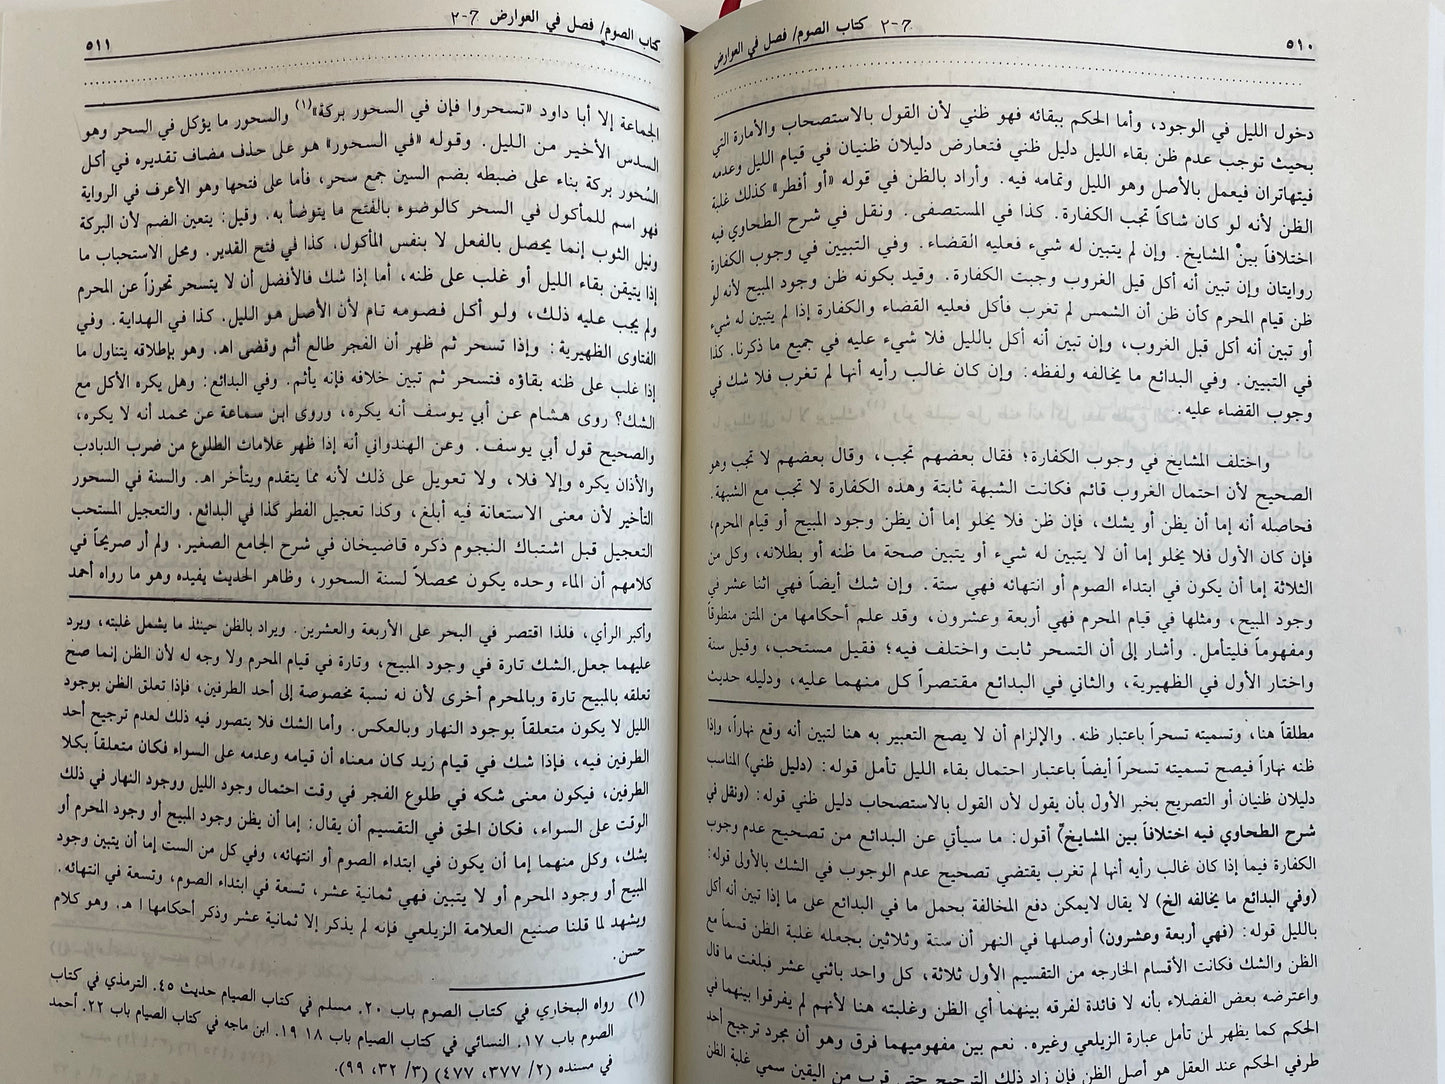 ٥١٠
٢-7 كتاب الصوم/ فصل في العوارض
دخول الليل في الوجود، وأما الحكم ببقائه فهو ظني لأن القول بالاستصحاب والأمارة التي
بحيث توجب عدم ظن بقاء الليل دليل ظني فتعارض دليلان ظنيان في قيام الليل وعدمه
فيتهاتران فيعمل بالأصل وهو الليل وتمامه فيه. وأراد بالظن في قوله «أو أفطر» كذلك غلبة
الظن لأنه لو كان شاكاً تجب الكفارة. كذا في المستصفى. ونقل في شرح الطحاوي فيه
اختلافاً بين المشايخ. وإن لم يتبين له شيء فعليه القضاء. وفي التبيين في وجوب الكفارة
روايتان وإن تبين أنه أكل قبل الغروب وجبت الكفارة. وقيد بكونه ظن وجود المبيح لأنه لو
ظن قيام المحرم كأن ظن أن الشمس لم تغرب فأكل فعليه القضاء والكفارة إذا لم يتبين له شيء
أو تبين أنه أكل قبل الغروب، وإن تبين أنه أكل بالليل فلا شيء عليه في جميع ما ذكرنا. كذا
في التبيين. وفي البدائع ما يخالفه ولفظه: وإن كان غالب رأيه أنها لم تغرب فلا شك في
وجوب القضاء عليه.
واختلف المشايخ في وجوب الكفارة؛ فقال بعضهم تجب، وقال بعضهم لا تجب وهو
الصحيح لأن احتمال الغروب قائم فكانت الشبهة ثابتة وهذه الكفارة لا تجب مع الشبهة.
فحاصله أنه إما أن يظن أو يشك، فإن ظن فلا يخلو إما أن يظن وجود المبيح أو قيام المحرم،
فإن كان الأول فلا يخلو إما أن لا يتبين له شيء أو يتبين صحة ما ظنه أو بطلانه، وكل من
الثلاثة إما أن يكون في ابتداء الصوم أو انتهائه فهي ستة. وإن شك أيضاً فهي اثنا عشر في
وجود المبيح، ومثلها في قيام المحرم فهي أربعة وعشرون، وقد علم أحكامها من المتن منطوقاً
ومفهوماً فليتأمل. وأشار إلى أن التسحر ثابت واختلف فيه؛ فقيل مستحب، وقيل سنة
واختار الأول في الظهيرية، والثاني في البدائع مقتصراً كل منهما عليه، ودليله حديث
مطلقاً هنا، وتسميته تسحراً باعتبار ظنه. والإلزام أن لا يصح التعبير به هنا لتبين أنه وقع نهاراً، وإذا
ظنه نهاراً فيصح تسميته تسحراً أيضاً باعتبار احتمال بقاء الليل تأمل قوله: (دليل ظني) المناسب
دليلان ظنيان أو التصريح بخبر الأول بأن يقول لأن القول بالاستصحاب دليل ظني قوله: (ونقل في
شرح الطحاوي فيه اختلافاً بين المشايخ) أقول: ما سيأتي عن البدائع من تصحيح عدم وجوب
الكفارة فيما إذا كان غالب رأيه أنها لم تغرب يقتضي تصحيح عدم الوجوب في الشك بالأولى قوله:
(وفي البدائع ما يخالفه الخ) لا يقال لايمكن دفع المخالفة بحمل ما في البدائع على ما إذا تبين أنه أكل
بالليل قوله: (فهي أربعة وعشرون) أوصلها في النهر أن ستة وثلاثين بجعله غلبة الظن قسماً مع
الظن والشك فكانت الأقسام الخارجه من التقسيم الأول ثلاثة، كل واحد باثني عشر فبلغت ما قال
واعترضه بعض الفضلاء بأنه لا فائدة لفرقه بينهما أي الظن وغلبته هنا لأنهم لم يفرقوا بينهما في
الحكم كما يظهر لمن تأمل عبارة الزيلعي وغيره. نعم بين مفهوميهما فرق وهو أن مجرد ترجيح أحد
طرفي الحكم عند العقل هو أصل الظن فإن زاد ذلك الترجيح حتى قرب من اليقين سمي غلبة الظن
كتاب الصوم/ فصل في العوارض ٢-7
٥١١
الجماعة إلا أبا داود «تسحروا فإن في السحور بركة»(١) والسحور ما يؤكل في السحر وهو
السدس الأخير من الليل. وقوله «في السحور» هو على حذف مضاف تقديره في أكل
السُحور بركة بناء على ضبطه بضم السين جمع سحر، فأما على فتحها وهو الأعرف في الرواية
فهو اسم للمأكول في السحر كالوضوء بالفتح ما يتوضأ به. وقيل: يتعين الضم لأن البركة
ونيل الثوب إنما يحصل بالفعل لا بنفس المأكول. كذا في فتح القدير. ومحل الاستحباب ما
إذا يتيقن بقاء الليل أو غلب على ظنه، أما إذا شك فالأفضل أن لا يتسحر تحرزاً عن المحرم
ولم يجب عليه ذلك، ولو أكل فصومه تام لأن الأصل هو الليل. كذا في الهداية. وفي
الفتاوى الظهيرية: وإذا تسحر ثم ظهر أن الفجر طالع أثم وقضى اهـ. وهو بإطلاقه يتناول ما
إذا غلب على ظنه بقاؤه فتسحر ثم تبين خلافه فإنه يأثم. وفي البدائع: وهل يكره الأكل مع
الشك؟ روى هشام عن أبي يوسف أنه يكره، وروى ابن سماعة عن محمد أنه لا يكره،
والصحيح قول أبي يوسف. وعن الهندواني أنه إذا ظهر علامات الطلوع من ضرب الدبادب
والأذان يكره وإلا فلا، ولا تعويل على ذلك لأنه مما يتقدم ويتأخر اهـ. والسنة في السحور
التأخير لأن معنى الاستعانة فيه أبلغ، وكذا تعجيل الفطر كذا في البدائع. والتعجيل المستحب
التعجيل قبل اشتباك النجوم ذكره قاضيخان في شرح الجامع الصغير. ولم أر صريحاً في
كلامهم أن الماء وحده يكون محصلاً لسنة السحور، وظاهر الحديث يفيده وهو ما رواه أحمد
وأكبر الرأي، فلذا اقتصر في البحر على الأربعة والعشرين. ويراد بالظن حينئذ ما يشمل غلبته، ويرد
عليهما جعل الشك تارة في وجود المبيح، وتارة في قيام المحرم ولا وجه له لأن الظن إنما صح
تعلقه بالمبيح تارة وبالمحرم أخرى لأن له نسبة مخصوصة إلى أحد الطرفين، فإذا تعلق الظن بوجود
الليل لا يكون متعلقاً بوجود النهار وبالعكس. وأما الشك فلا يتصور فيه ذلك لعدم ترجيح أحد
الطرفين فيه، فإذا شك في قيام زيد كان معناه أن قيامه وعدمه على السواء فكان متعلقاً بكلا
الطرفين، فيكون معنى شكه في طلوع الفجر في وقت احتمال وجود الليل ووجود النهار في ذلك
الوقت على السواء، فكان الحق في التقسيم أن يقال: إما أن يظن وجود المبيح أو وجود المحرم أو
يشك، وكل منهما إما أن يكون في ابتداء الصوم أو انتهائه، وفي كل من الست إما أن يتبين وجود
المبيح أو وجود المحرم أو لا يتبين فهي ثمانية عشر، تسعة في ابتداء الصوم، وتسعة في انتهائه.
ويشهد لما قلنا صنيع العلامة الزيلعي فإنه لم يذكر إلا ثمانية عشر وذكر أحكامها ا هـ. وهو كلام
حسن.
(١) رواه البخاري في كتاب الصوم باب ٢٠. مسلم في كتاب الصيام حديث ٤٥. الترمذي في كتاب
الصوم باب ١٧. النسائي في كتاب الصيام باب ١٨ ١٩. ابن ماجه في كتاب الصيام باب ٢٢. أحمد
في مسنده (٢/ ٣٧٧، ٤٧٧) (٣/ ٣٢، ٩٩).